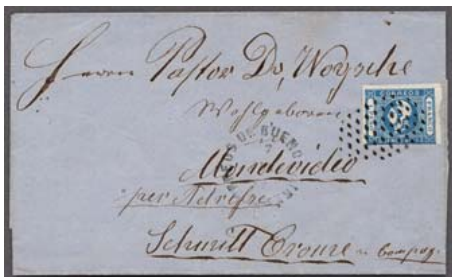 Herrn Pastor Dr. Woysche
Wohlgeboren
CORREOS
BUENO
Montevideo
per Adresse
Schmitt Croune & Compag.